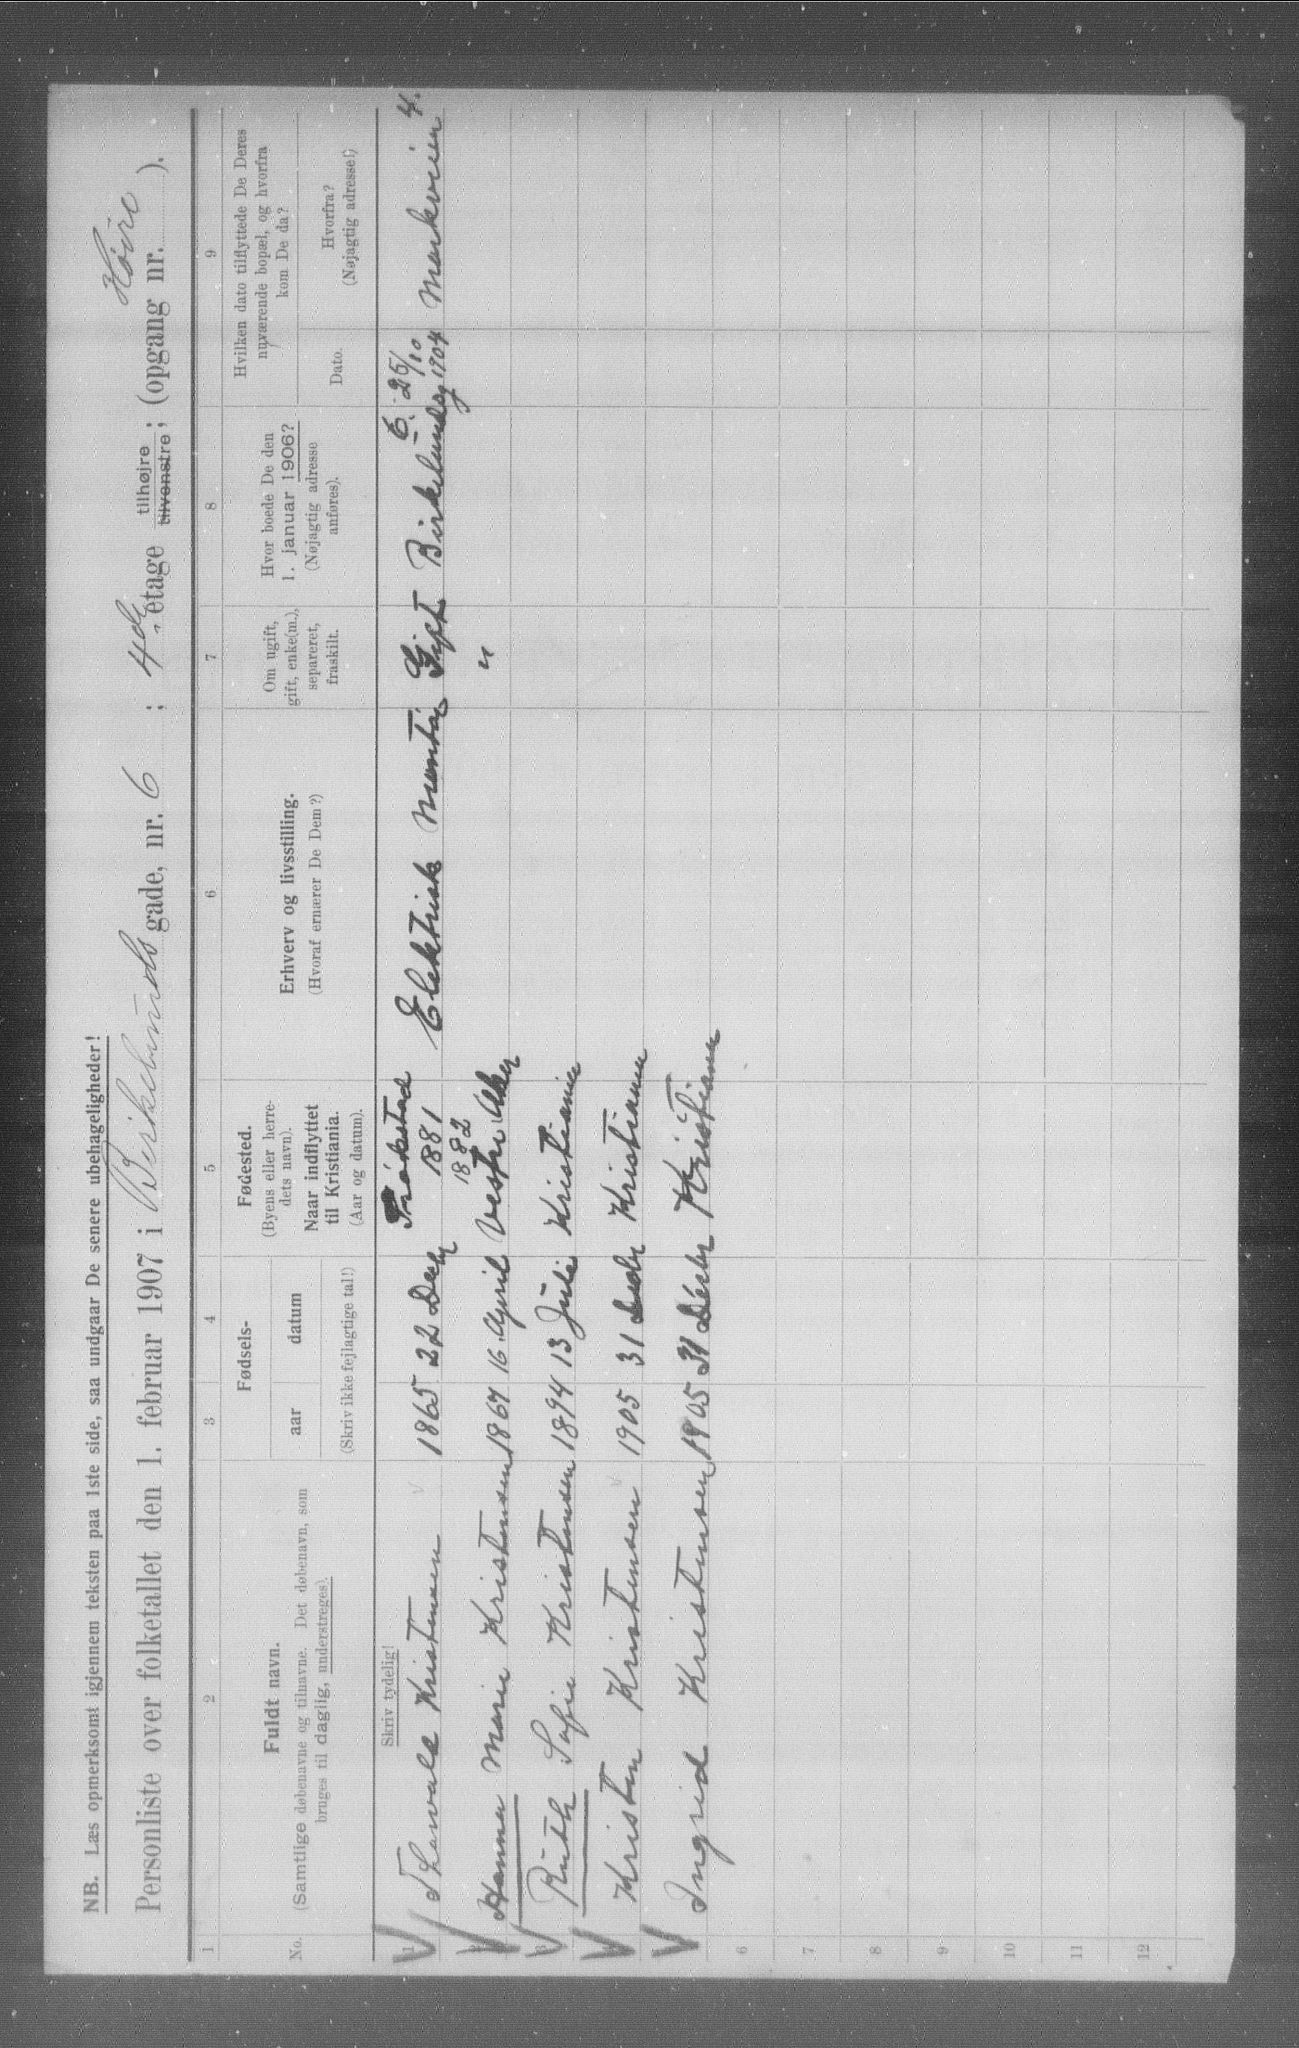 NB. Læs opmerksomt igjennem teksten paa 1ste side, saa undgaar De senere ubehageligheder!
Personliste over folketallet den 1. februar 1907 i Birkelunds gade, nr. 6 ; 4de etage tilhøjre tilvenstre; (opgang nr. Høire ).
1 2 3 4 5 6 7 8 9
No.
Fuldt navn.
(Samtlige døbenavne og tilnavne. Det døbenavn, som
bruges til daglig, understreges).
Fødsels-
aar datum
(Skriv ikke fejlagtige tal!)
Fødested.
(Byens eller herre-
dets navn).
Naar indflyttet
til Kristiania.
(Aar og datum).
Erhverv og livsstilling.
(Hvoraf ernærer De Dem?)
Om ugift,
gift, enke(m.),
separeret,
fraskilt.
Hvor boede De den
1. januar 1906?
(Nøjagtig adresse
anføres).
Hvilken dato tilflyttede De Deres
nuværende bopæl, og hvorfra
kom De da?
Dato.
Hvorfra?
(Nøjagtig adresse!)
Skriv tydelig!
1 Thorvald Kristensen 1865 22 Desbr Trøkstad 1881 Elektrisk Montør Gift Birkelundsg 6. 25/10 1904 Markveien 4.
2 Hanna Marie Kristensen 1867 16 April 1882 Vestre Aker "
3 Ruth Sofie Kristensen 1894 13 Juli Kristiania
4 Kristen Kristensen 1905 31 Desbr Kristiania
5 Ingrid Kristensen 1905 31 Desbr Kristiania
6
7
8
9
10
11
12